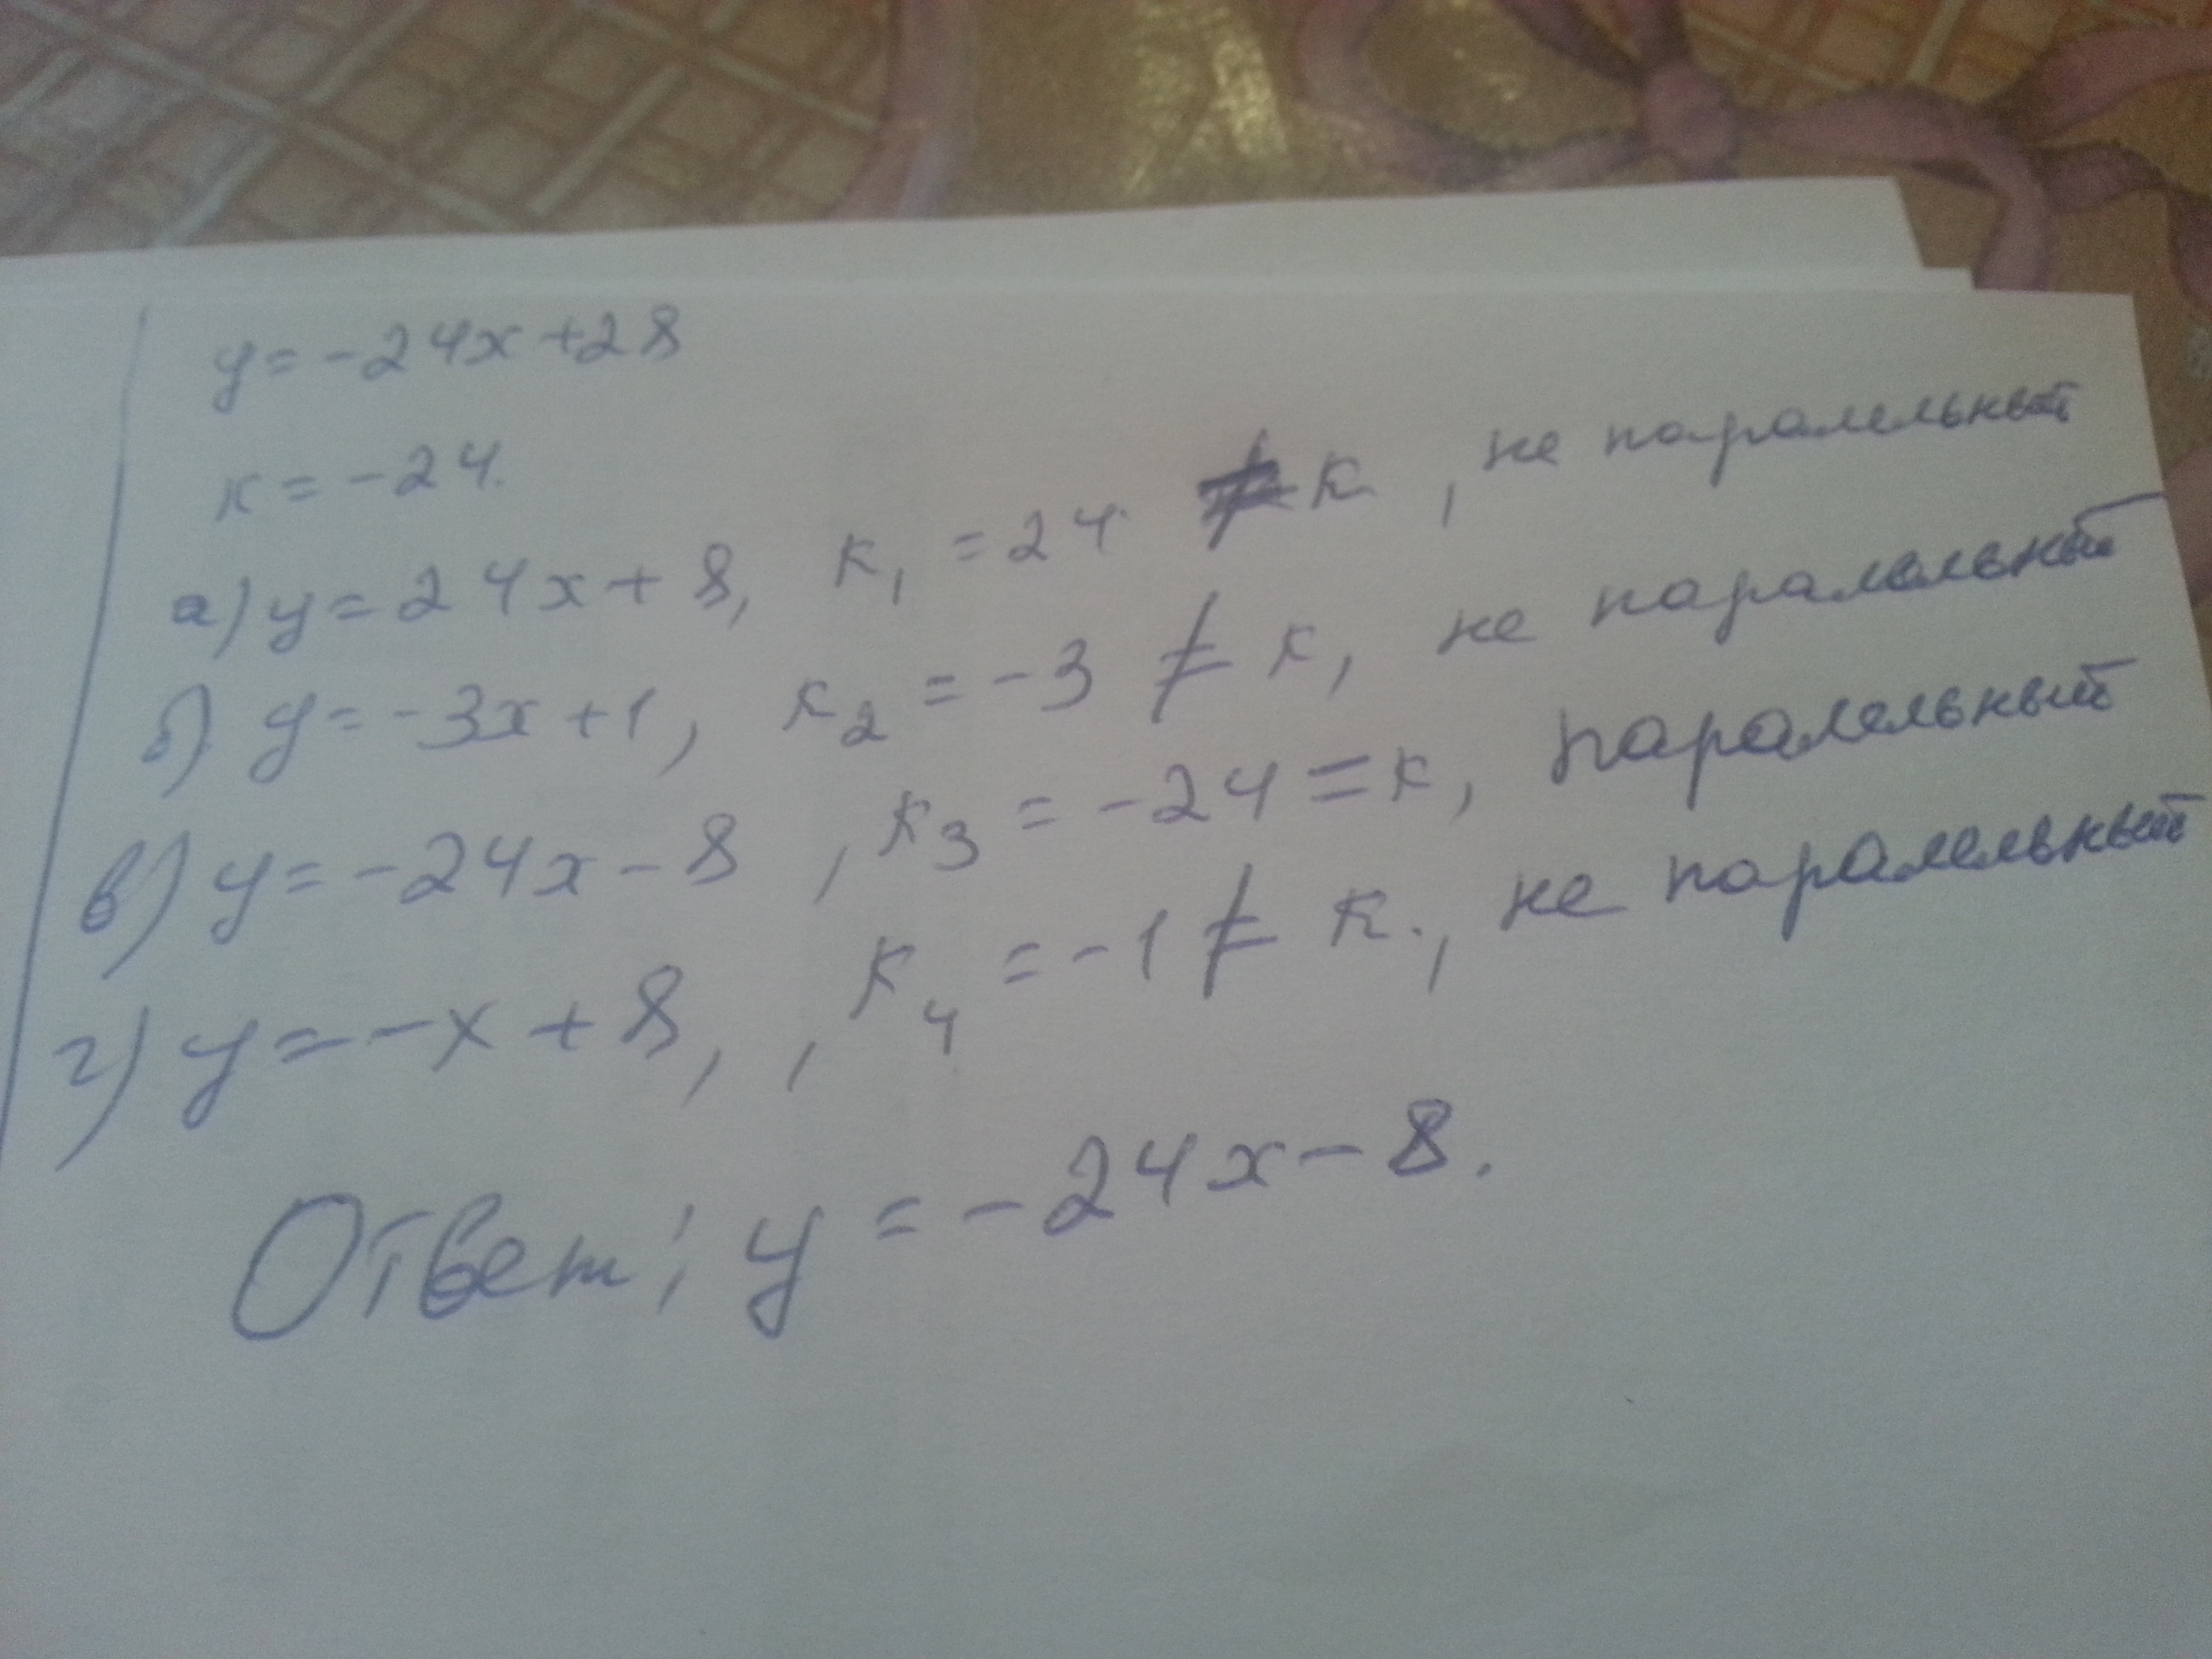 y = -24x + 28
к = -24.
а) y = 24x + 8, к₁ = 24 ≠ к, не паралельный
б) y = -3x + 1, к₂ = -3 ≠ к, не паралельный
в) y = -24x - 8, к₃ = -24 = к, паралельный
г) y = -x + 8, , к₄ = -1 ≠ к., не паралельный
Ответ: y = -24x - 8.